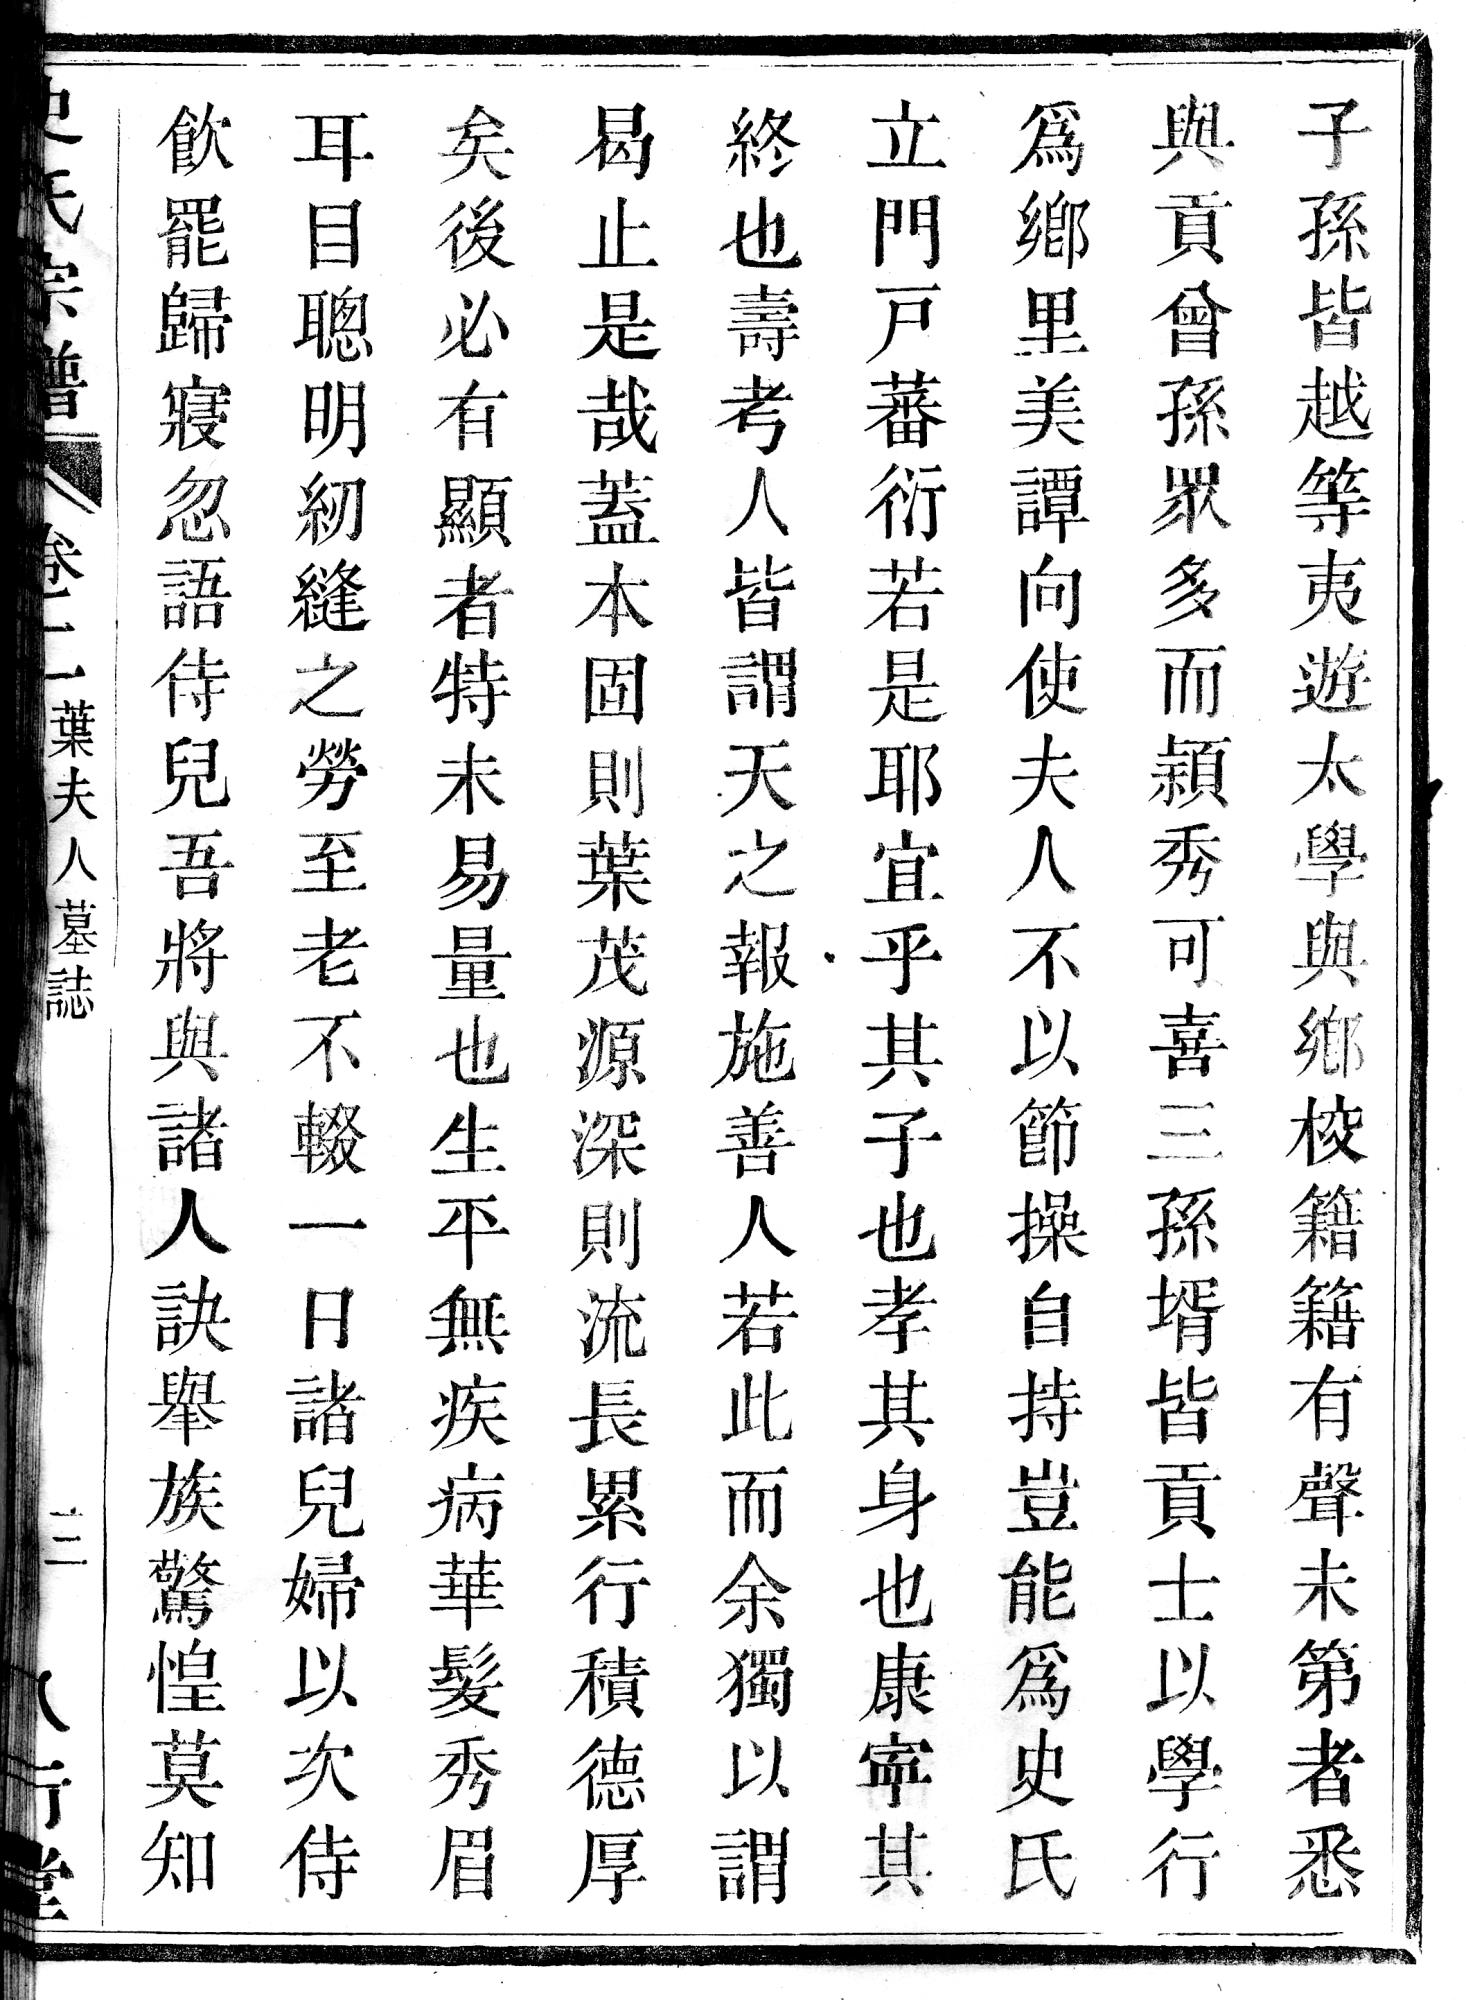 子孫皆越等夷遊太學與鄉校籍籍有聲未第者悉
與貢曾孫眾多而穎秀可喜三孫壻皆貢士以學行
爲鄉里美譚向使夫人不以節操自持豈能爲史氏
立門戸蕃衍若是耶宜乎其子也孝其身也康寧其
終也壽考人皆謂天之報施善人若此而余獨以謂
曷止是哉葢本固則葉茂源深則流長累行積德厚
矣後必有顯者特未易量也生平無疾病華髮秀眉
耳目聰明紉縫之勞至老不輟一日諸兒婦以次侍
飲罷歸寢忽語侍兒吾將與諸人訣舉族驚惶莫知
史氏宗譜 卷二 葉夫人墓誌 三 八行堂